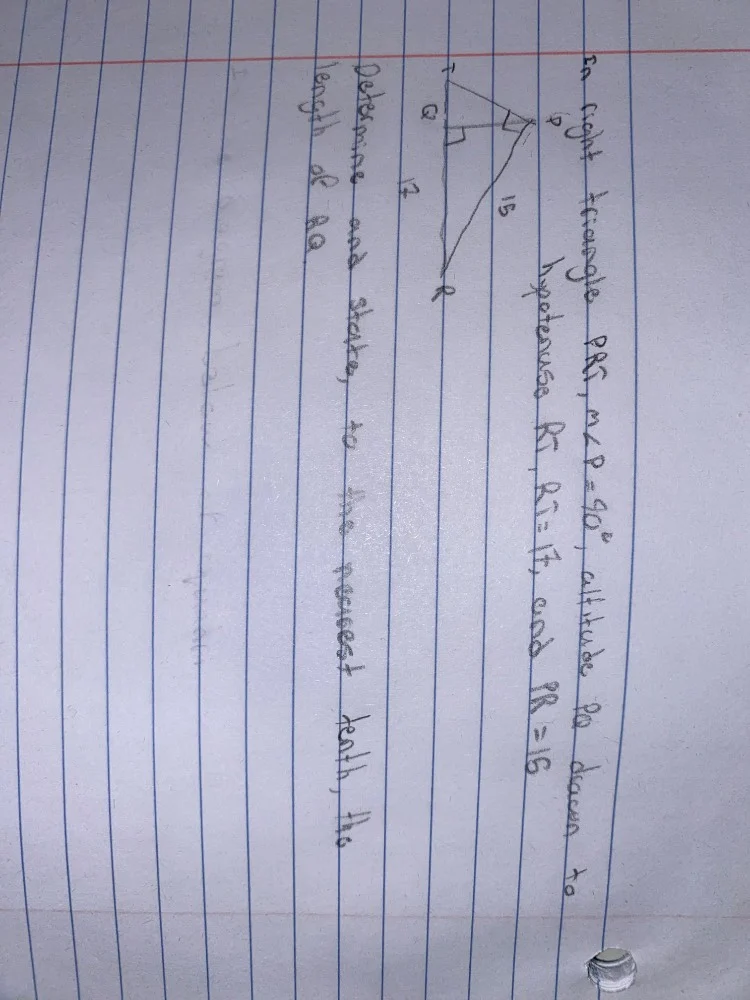 In right triangle PRT, m<P = 90°, altitude PQ drawn to
hypotenuse RT, RT = 17, and PR = 15
P
15
T
Q
R
17
Determine and state, to the nearest tenth, the
length of RQ